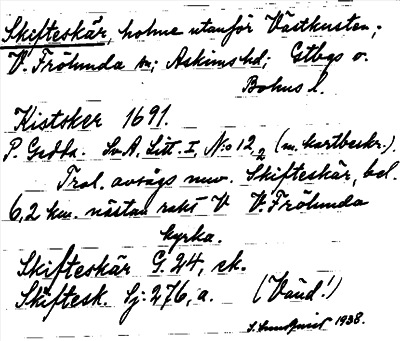 Skifteskär, holme utanför Västkusten;
V. Frölunda sn; Askims hd; Gtbgs o.
Bohus l.
Kistsker 1691.
P. Gedda. Sv. A, Litt. I, N:o 12, 2 (m. kartbeskr.).
Trol. avsågs nuv. Skifteskär, bel.
6,2 km. nästan rakt V V. Frölunda
kyrka.
Skifteskär G. 24, ek.
Skiftesk. Sj: 276, a. (Vänd!)
S. Lundquist 1938.